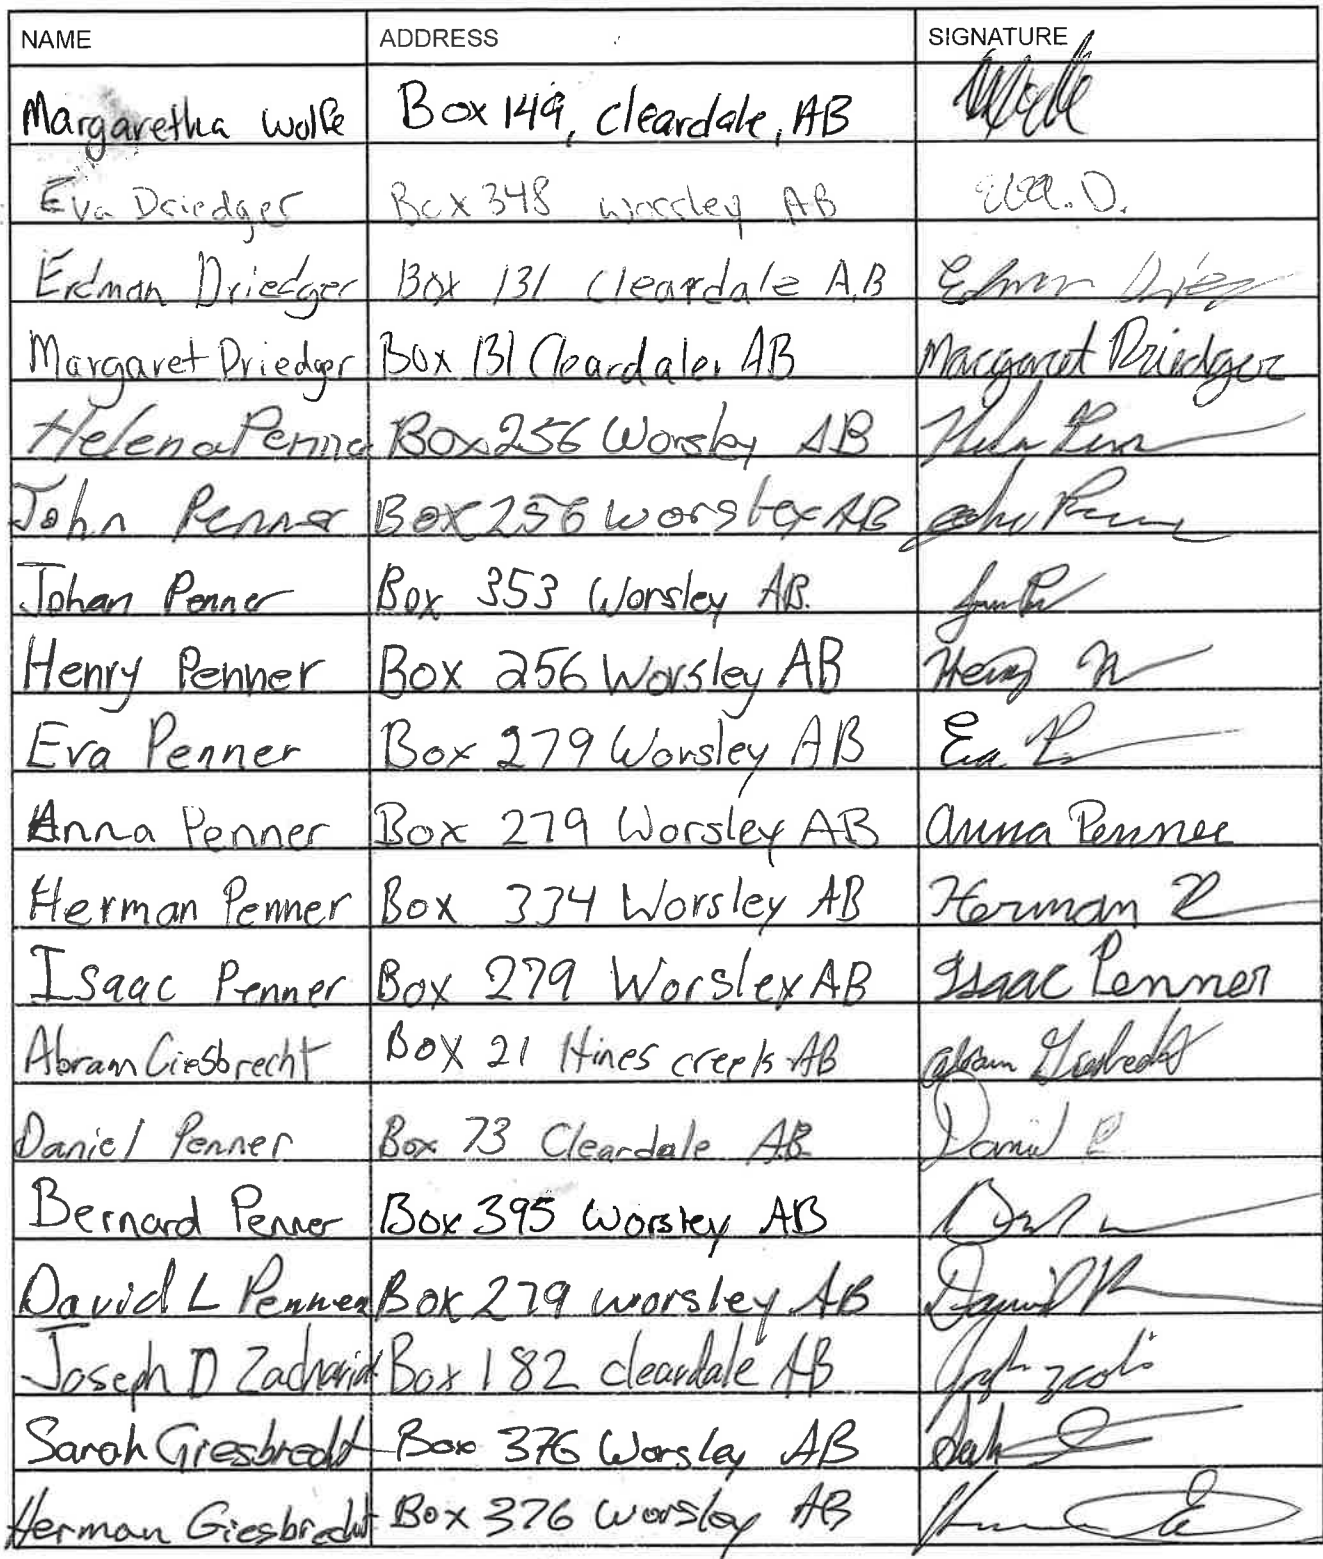 NAME ADDRESS SIGNATURE
Margaretha Wolfe Box 149, Cleardale, AB
Eva Driedger Box 348 Worsley AB Eva. D.
Erdman Driedger Box 131 Cleardale A.B
Margaret Driedger Box 131 Cleardale, AB Margaret Driedger
Helena Penner Box 256 Worsley AB
John Penner Box 256 Worsley AB
Johan Penner Box 353 Worsley AB.
Henry Penner Box 256 Worsley AB Henry
Eva Penner Box 279 Worsley AB Eva
Anna Penner Box 279 Worsley AB Anna Penner
Herman Penner Box 334 Worsley AB Herman
Isaac Penner Box 279 Worsley AB Isaac Penner
Abram Giesbrecht Box 21 Hines creek AB Abram Giesbrecht
Daniel Penner Box 73 Cleardale AB Daniel P
Bernard Penner Box 395 Worsley AB
David L Penner Box 279 worsley AB David
Joseph D Zacharias Box 182 cleardale AB
Sarah Giesbrecht Box 376 Worsley AB
Herman Giesbrecht Box 376 Worsley AB